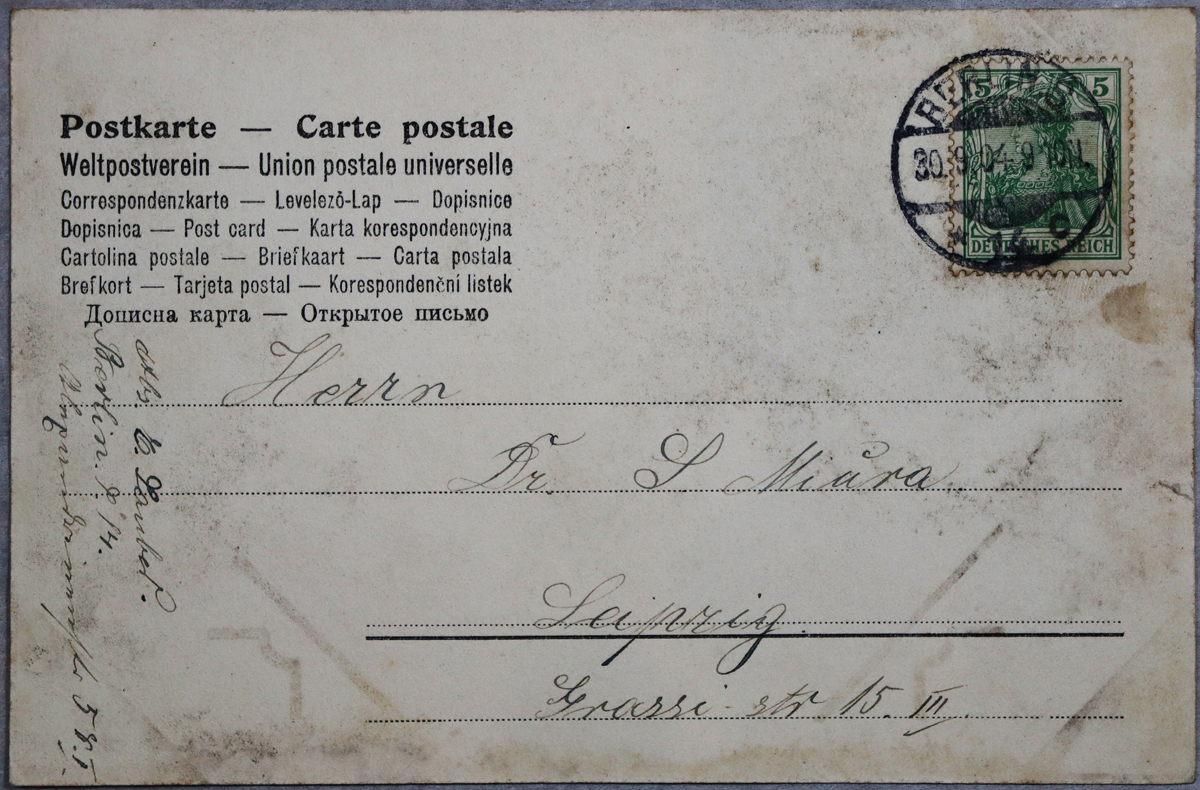 Postkarte — Carte postale
Weltpostverein — Union postale universelle
Correspondenzkarte — Levelező-Lap — Dopisnice
Dopisnica — Post card — Karta korespondencyjna
Cartolina postale — Briefkaart — Carta postala
Brefkort — Tarjeta postal — Korespondenční listek
Дописна карта — Открытое письмо
BERLIN
30.9.04 9
14 c
5 5
DEUTSCHES REICH
Herrn
Dr. S Miŭra
Leipzig.
Grassi str 15. III.
Berlin. d 14.